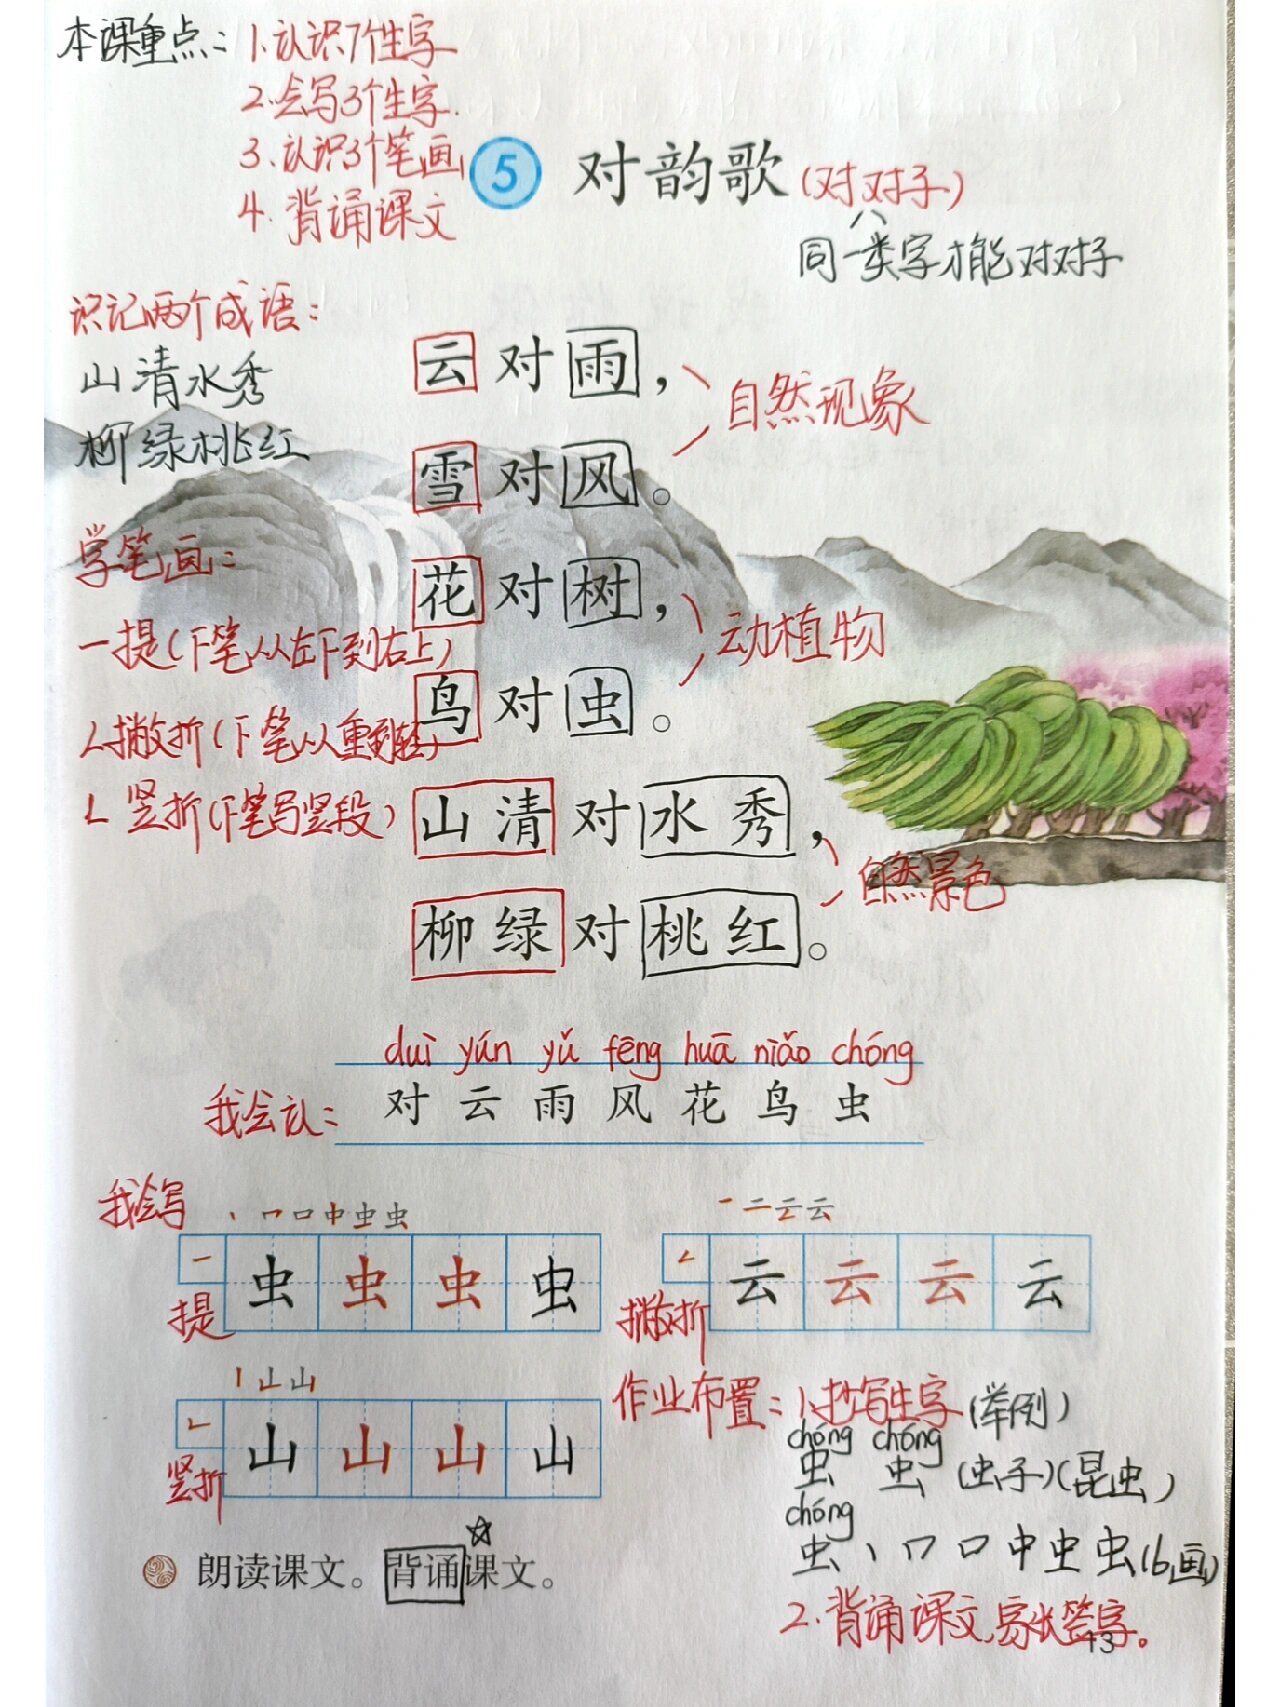 本课重点：1.认识7个生字
2.会写3个生字.
3.认识3个笔画
4.背诵课文
5 对韵歌(对对子)
同一类字才能对对子
识记两个成语：
山清水秀
柳绿桃红
云对雨，
雪对风。
自然现象
花对树，
鸟对虫。
动植物
山清对水秀，
柳绿对桃红。
自然景色
学笔画：
㇀提(下笔从左下到右上)
𠃋撇折(下笔从重到轻)
𠃊竖折(下笔写竖段)
duì yún yǔ fēng huā niǎo chóng
我会认：对 云 雨 风 花 鸟 虫
我会写
丶 𠃍 口 中 虫 虫
㇀ 虫 虫 虫 虫
提
一 二 云 云
𠃋 云 云 云 云
撇折
丨 𠃊 山
𠃊 山 山 山 山
竖折
作业布置：1.抄写生字(举例)
chóng chóng
虫 虫 (虫子)(昆虫)
chóng
虫 丶 𠃍 口 中 虫 虫(6画)
2.背诵课文,家长签字。
朗读课文。背诵课文。
13